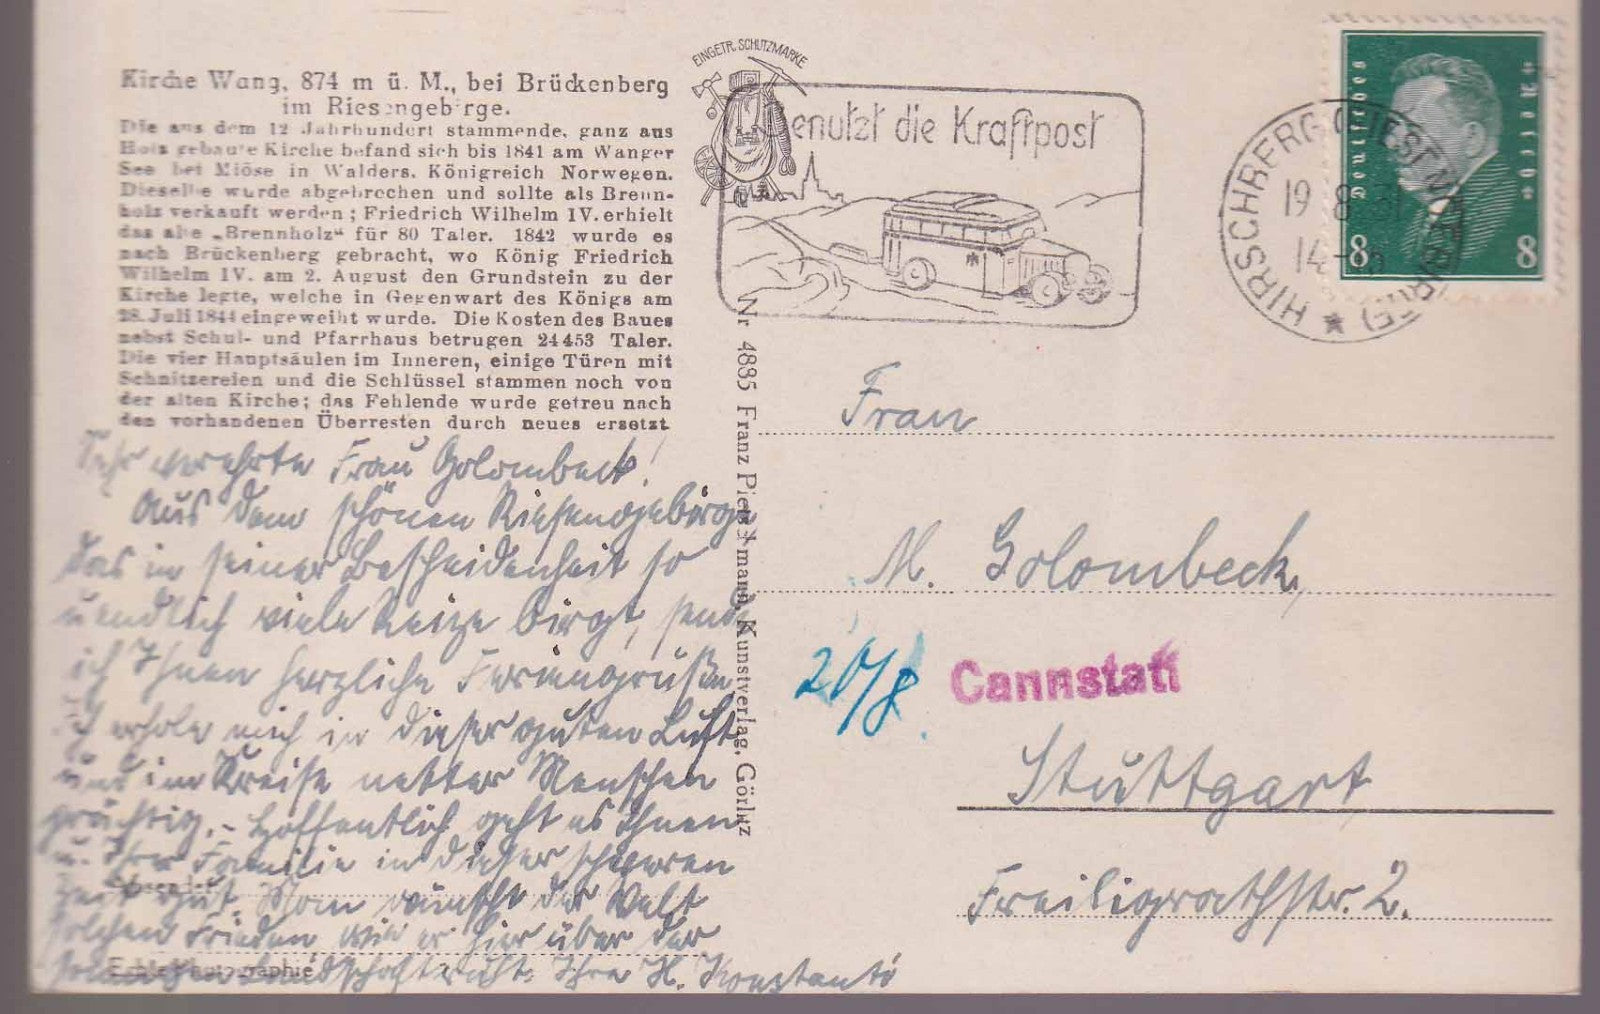 Kirche Wang, 874 m ü. M., bei Brückenberg
im Riesengebirge.
Die aus dem 12 Jahrhundert stammende, ganz aus
Holz gebaute Kirche befand sich bis 1841 am Wanger
See bei Miöse in Walders, Königreich Norwegen.
Dieselbe wurde abgebrochen und sollte als Brenn-
holz verkauft werden; Friedrich Wilhelm IV. erhielt
das alte „Brennholz“ für 80 Taler. 1842 wurde es
nach Brückenberg gebracht, wo König Friedrich
Wilhelm IV. am 2. August den Grundstein zu der
Kirche legte, welche in Gegenwart des Königs am
28. Juli 1844 eingeweiht wurde. Die Kosten des Baues
nebst Schul- und Pfarrhaus betrugen 24453 Taler.
Die vier Hauptsäulen im Inneren, einige Türen mit
Schnitzereien und die Schlüssel stammen noch von
der alten Kirche; das Fehlende wurde getreu nach
den vorhandenen Überresten durch neues ersetzt
Sehr verehrte Frau Golombeck!
Aus dem schönen Riesengebirge
das in seiner Bescheidenheit so
unendlich viele Reize birgt, sende
ich Ihnen herzliche Feriengrüße.
Ich erhole mich in dieser guten Luft
und im Kreise netter Menschen
prächtig. – Hoffentlich geht es Ihnen
u. Ihrer Familie in dieser schweren
Zeit gut. Man wünscht der Welt
solchen Frieden wie er hier über der
Landschaft ruht. Ihre H. Konstanti
Absender:
Echte Photographie
EINGETR. SCHUTZMARKE
Benutzt die Kraftpost
Nr 4885 Franz Pietschmann, Kunstverlag, Görlitz
HIRSCHBERG (RIESENGEBIRGE)
19 8 31
14
Deutsches Reich
8 8
Frau
M. Golombeck,
20/8.
Cannstatt
Stuttgart
Freiligrathstr. 2.